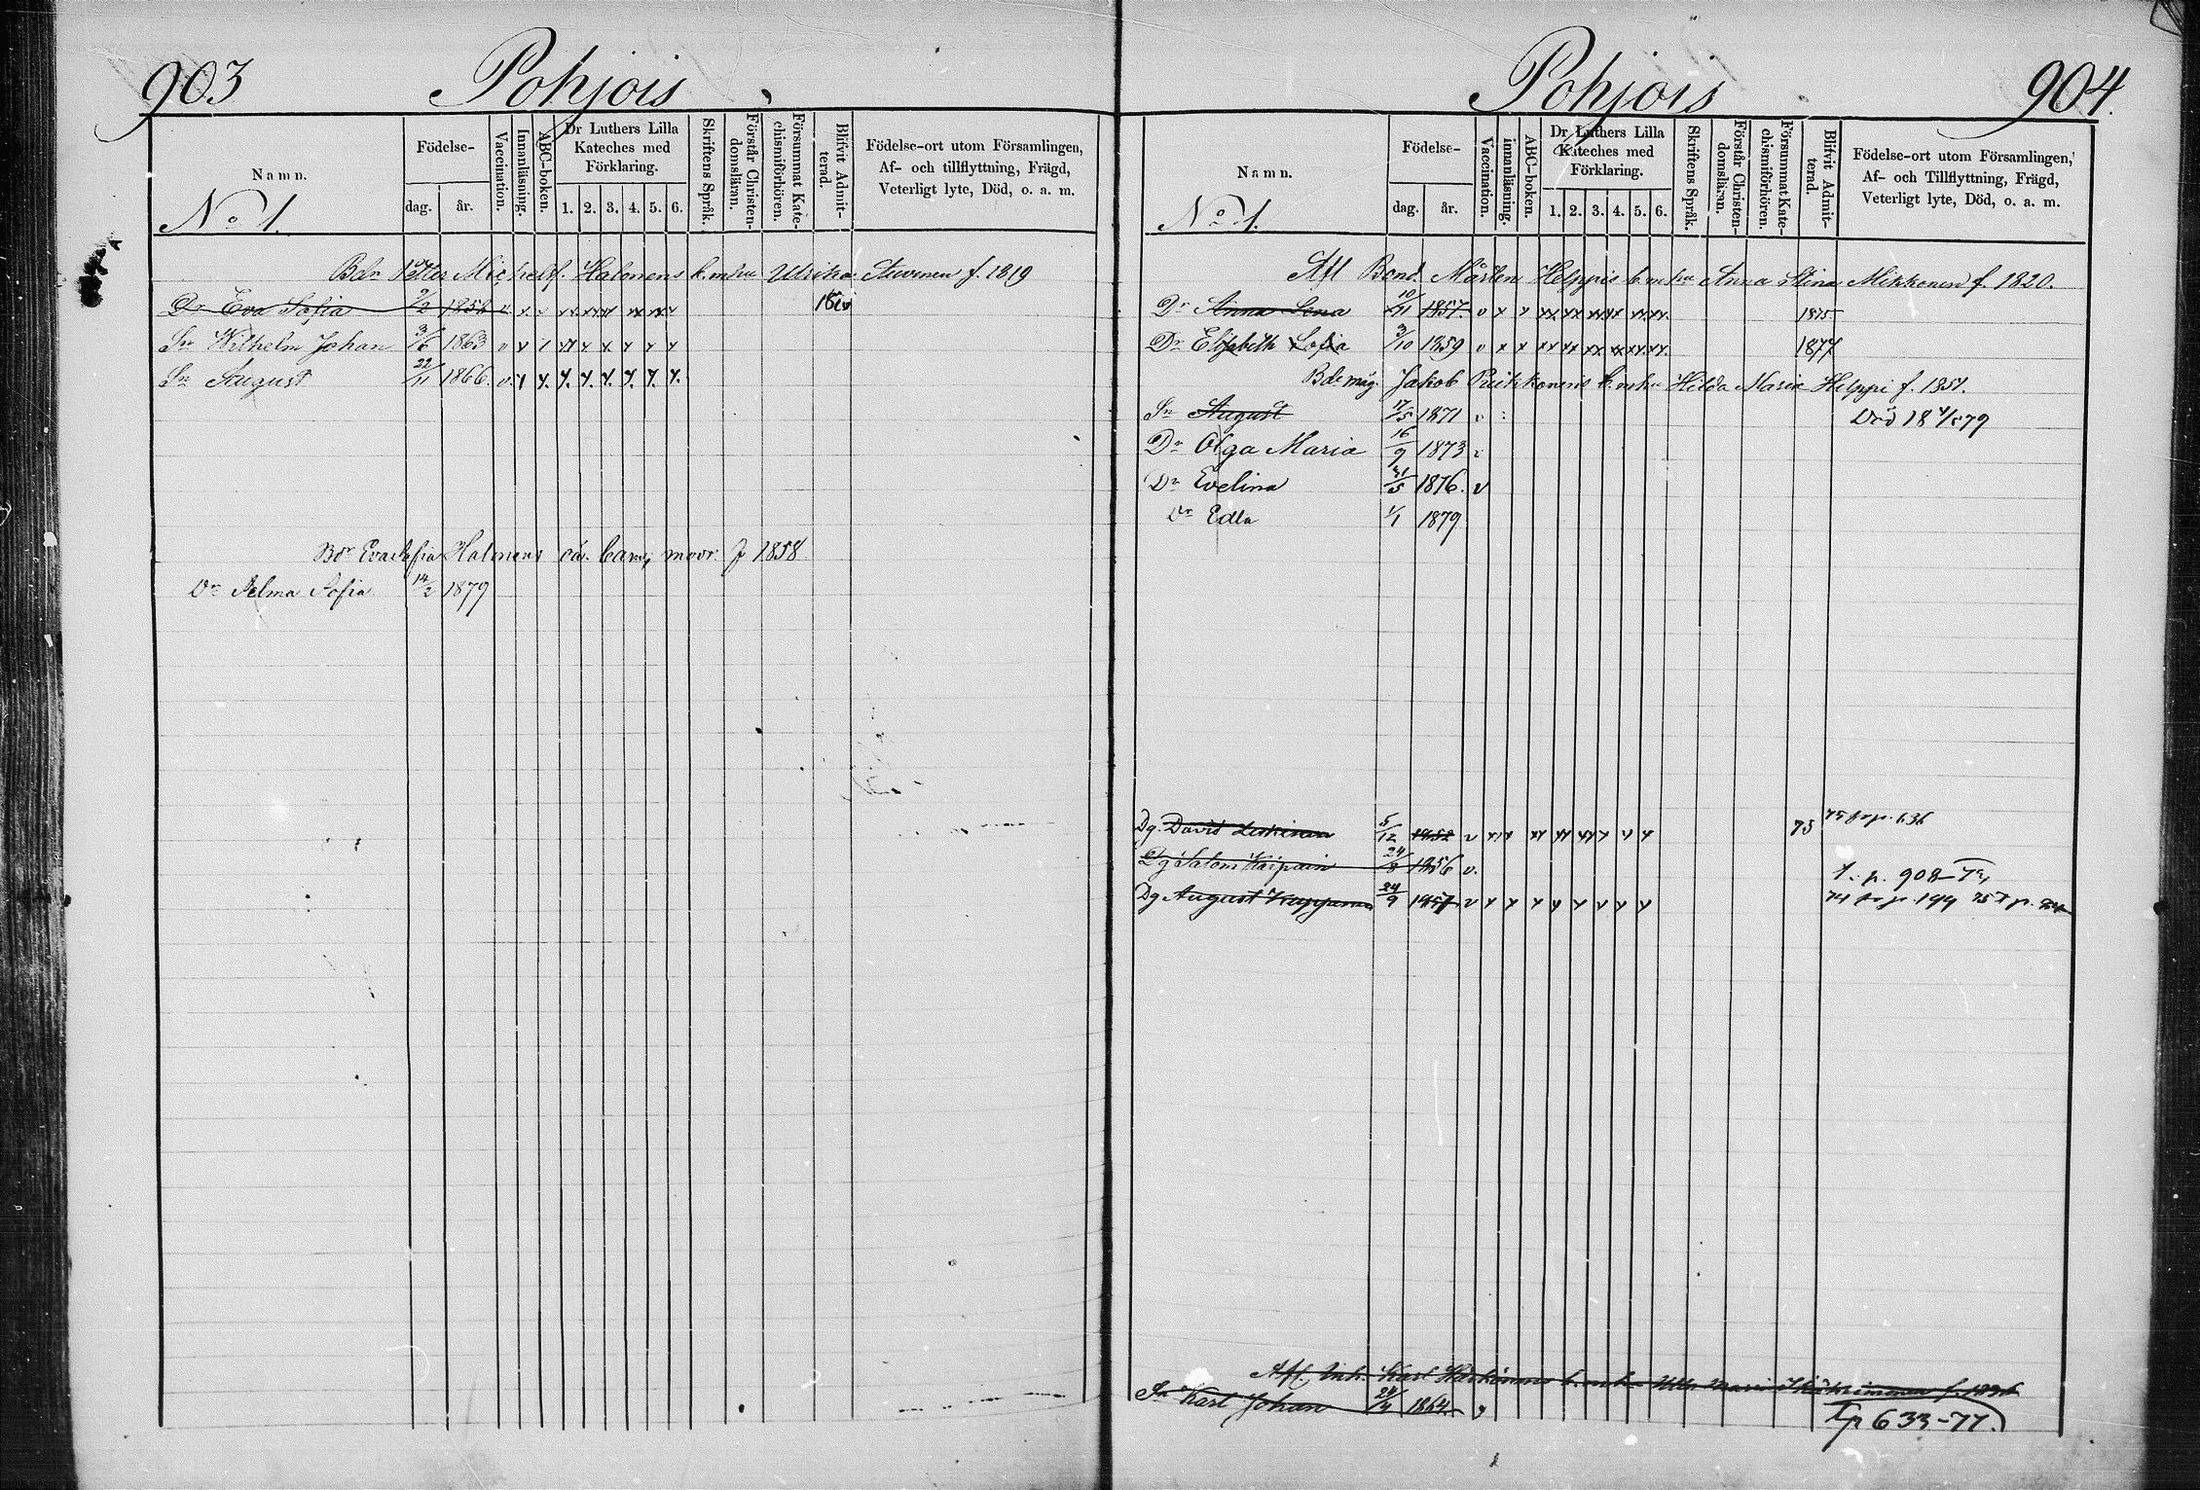 903 Pohjois
Namn.
No 1.
Födelse-
dag. år.
Vaccination.
Innanläsning.
ABC-boken.
Dr Luthers Lilla Kateches med Förklaring.
1. 2. 3. 4. 5. 6.
Skriftens Språk.
Förstår Christendomsläran.
Försummat Katechismiförhören.
Blifvit Admitterad.
Födelse-ort utom Församlingen,
Af- och tillflyttning, Frägd,
Veterligt lyte, Död, o. a. m.
Bdn Petter Michelsf. Halonens b. m. hu Ulrika f. 1819
Dr Eva Sofia 2/2 1858 v x
Sn Wilhelm Johan 3/6 1863 v x
Sn August 22/11 1866. v. x x. x. x. x. x. x. x.
Eva Sofia f 1858
Dr Selma Sofia 14/2 1879
Pohjois 904.
Namn.
No 1.
Födelse-
dag. år.
Vaccination.
innanläsning.
ABC-boken.
Dr Luthers Lilla Kateches med Förklaring.
1. 2. 3. 4. 5. 6.
Skriftens Språk.
Förstår Christendomsläran.
Försummat Katechismiförhören.
Blifvit Admitterad.
Födelse-ort utom Församlingen,
Af- och Tillflyttning, Frägd,
Veterligt lyte, Död, o. a. m.
Afl Bond. Mårten Helppis b. m. hu Anna Stina Mikkonen f. 1820.
Dr Anna Lena 10/11 1857. v x x xx xx xx xx xx 1875
Dr Elisabeth Sofia 3/10 1859 v x x xx xx xx xx xx 1877
Bdemåg. Jakob b. m. hu Hilda Maria Helppi f. 1851.
Sn August 17/5 1871 v Död 1879
Dr Olga Maria 16/9 1873 v
Dr Evelina 31/5 1876. v
Dr Edla 1/1 1879
Dg. David 5/12 1852 v 75 p. 636
Dg Salom 24/8 1856 v. p. 908
Dg August 24/9 1857 v x x x x x x x x p. 199
Afl. Inh. Karl b. m. hu
Sn Karl Johan 1864 v
Tp 633-77.